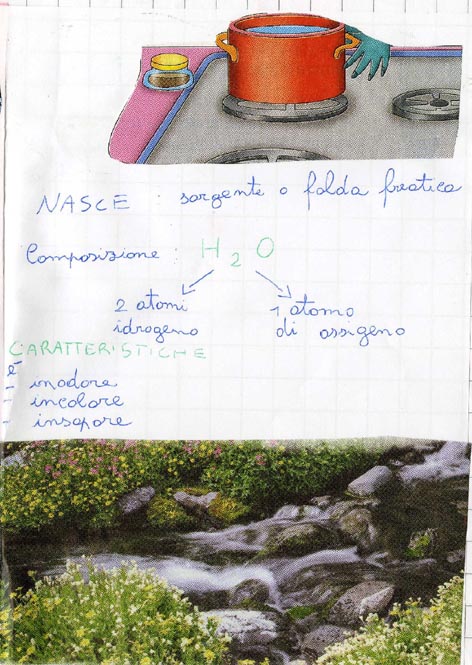 NASCE : sorgente o falda freatica
Composizione : H2O
2 atomi 1 atomo
idrogeno di ossigeno
CARATTERISTICHE
è
- inodore
- incolore
- insapore